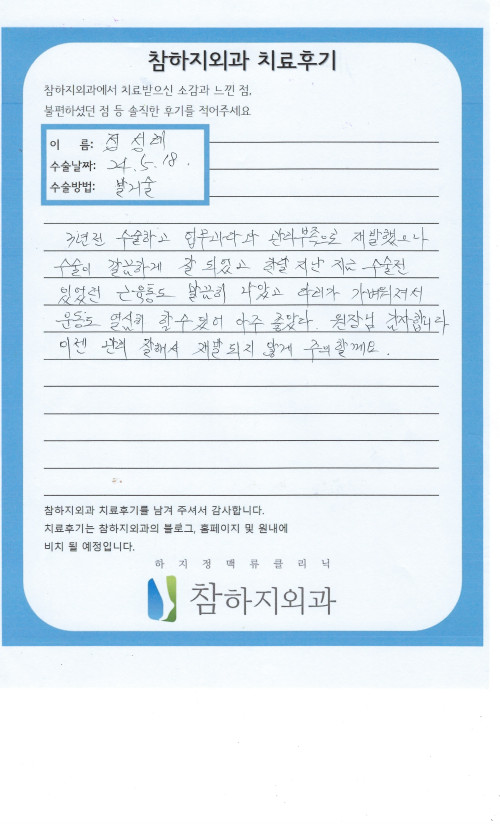 참하지외과 치료후기
참하지외과에서 치료받으신 소감과 느낀 점,
불편하셨던 점 등 솔직한 후기를 적어주세요
이 름: 정성례
수술날짜: 24. 5. 18.
수술방법: 발거술
3년전 수술하고 업무과다와 관리부족으로 재발했으나
수술이 깔끔하게 잘 되었고 한달 지난 지금 수술전
있었던 근육통도 말끔히 나았고 다리가 가벼워져서
운동도 열심히 할수 있어 아주 좋았다. 원장님 감사합니다
이젠 관리 잘해서 재발되지 않게 주의할께요.
참하지외과 치료후기를 남겨 주셔서 감사합니다.
치료후기는 참하지외과의 블로그, 홈페이지 및 원내에
비치 될 예정입니다.
하지정맥류클리닉
참하지외과